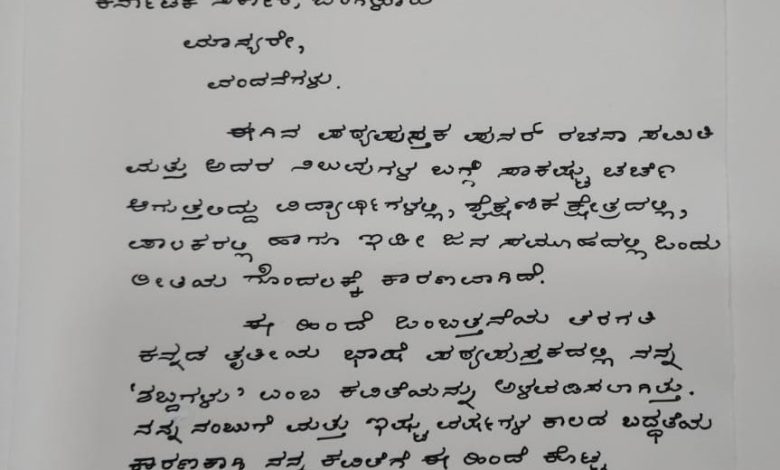 ಕರ್ನಾಟಕ ಸರ್ಕಾರ, ಬೆಂಗಳೂರು
ಮಾನ್ಯರೇ,
ವಂದನೆಗಳು.
ಈಗಿನ ಪಠ್ಯಪುಸ್ತಕ ಪುನರ್ ರಚನಾ ಸಮಿತಿ
ಮತ್ತು ಅದರ ನಿಲುವುಗಳ ಬಗ್ಗೆ ಸಾಕಷ್ಟು ಚರ್ಚೆ
ಆಗುತ್ತಲಿದ್ದು ವಿದ್ಯಾರ್ಥಿಗಳಲ್ಲಿ, ಶೈಕ್ಷಣಿಕ ಕ್ಷೇತ್ರದಲ್ಲಿ,
ಪಾಲಕರಲ್ಲಿ ಹಾಗೂ ಇಡೀ ಜನ ಸಮೂಹದಲ್ಲಿ ಒಂದು
ರೀತಿಯ ಗೊಂದಲಕ್ಕೆ ಕಾರಣವಾಗಿದೆ.
ಈ ಹಿಂದೆ ಒಂಬತ್ತನೆಯ ತರಗತಿ
ಕನ್ನಡ ತೃತೀಯ ಭಾಷೆ ಪಠ್ಯಪುಸ್ತಕದಲ್ಲಿ ನನ್ನ
'ಶಬ್ದಗಳು' ಎಂಬ ಕವಿತೆಯನ್ನು ಅಳವಡಿಸಲಾಗಿತ್ತು.
ನನ್ನ ನಂಬುಗೆ ಮತ್ತು ಇಷ್ಟು ವರ್ಷಗಳ ಕಾಲದ ಬದ್ಧತೆಯ
ಕಾರಣಕ್ಕಾಗಿ ನನ್ನ ಕವಿತೆಗೆ ಈ ಹಿಂದೆ ಕೊಟ್ಟ